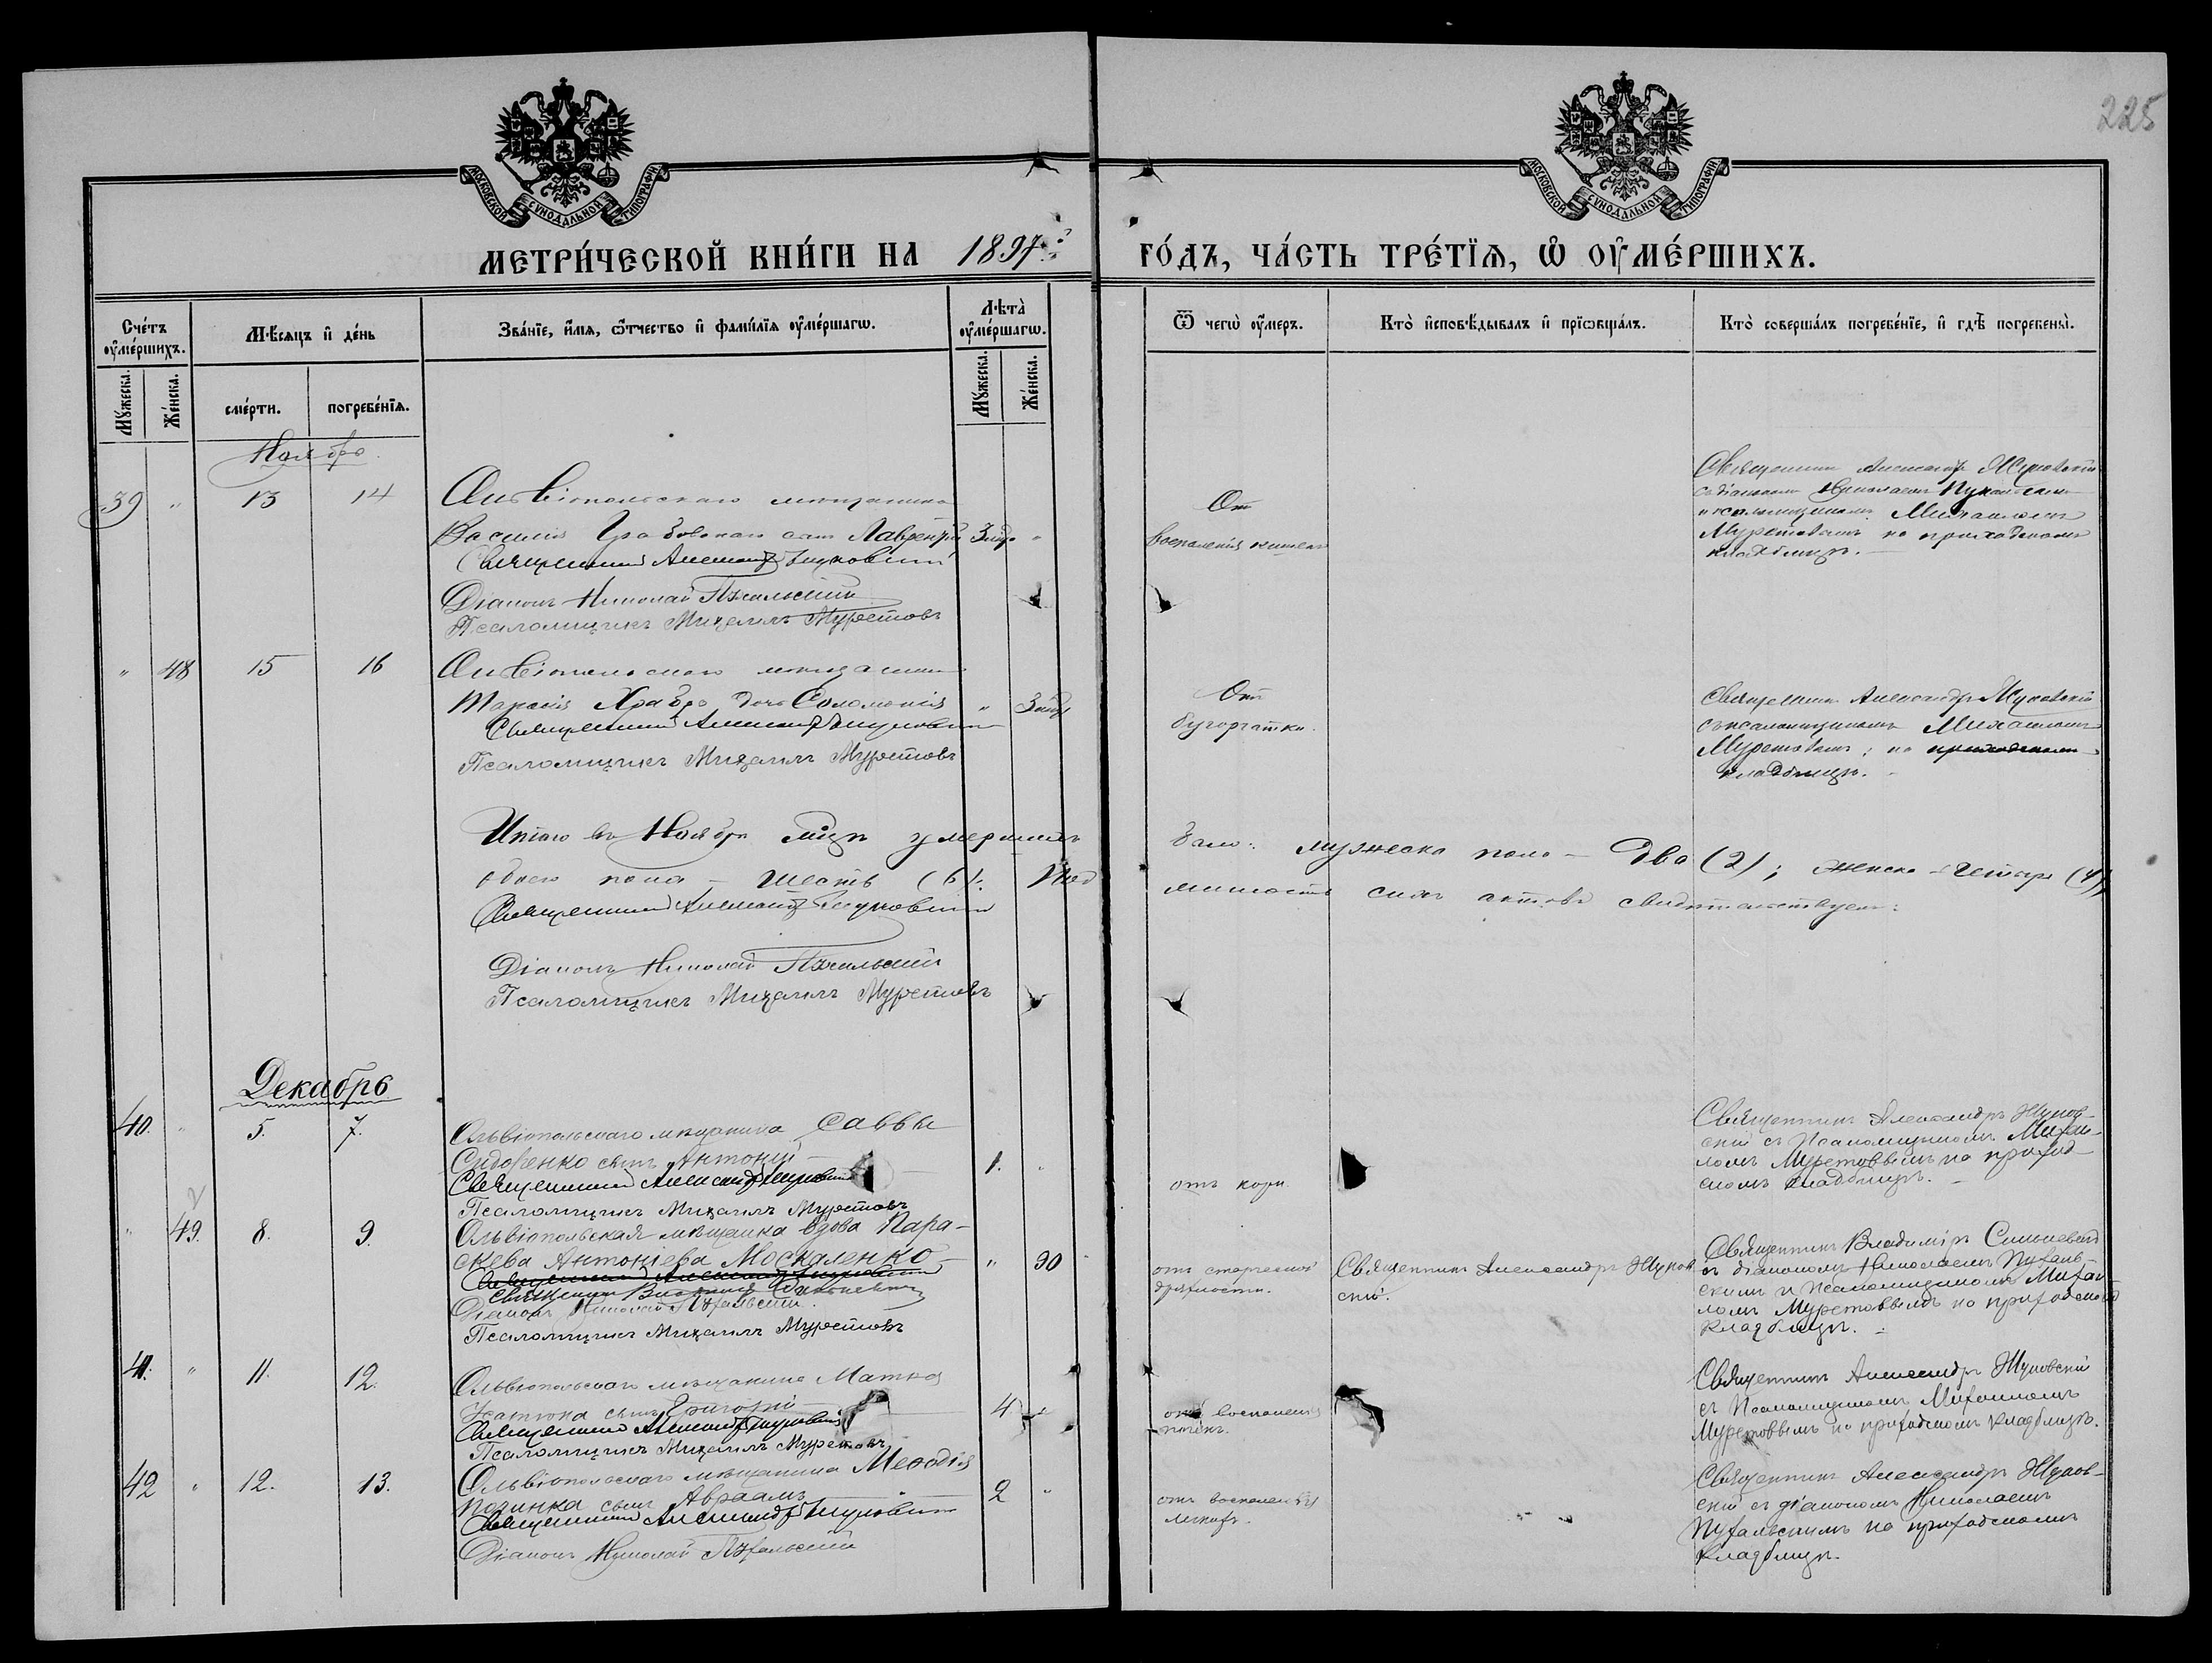 225
МОСКОВСКОЙ СѴНОДАЛЬНОЙ ТИПОГРАФІИ
МОСКОВСКОЙ СѴНОДАЛЬНОЙ ТИПОГРАФІИ
МЕТРИ́ЧЕСКОЙ КНИ́ГИ НА 1897 ГО́ДЪ, ЧА́СТЬ ТРЕ́ТЇѦ, Ѡ҆ ОУ҆МЕ́РШИХЪ.
Сче́тъ оу҆ме́ршихъ.
Мꙋ́жеска.
Же́нска.
Мѣ́сѧцъ и҆ де́нь
сме́рти.
погребе́нїѧ.
Зва́нїе, и҆́мѧ, ѻ҆́тчество и҆ фами́лїѧ оу҆ме́ршагѡ.
Лѣта̀ оу҆ме́ршагѡ.
Мꙋ́жеска.
Же́нска.
Ѿ чегѡ̀ оу҆́меръ.
Кто̀ и҆сповѣ́дывалъ и҆ прїѡбща́лъ.
Кто̀ соверша́лъ погребе́нїе, и҆ гдѣ̀ погребены̀.
Ноябрь
39 " 13 14
Ольвіопольскаго мѣщанина
Василія Грабовскаго сынъ Лаврентій
"
Священникъ Александръ Жуковскій
Діаконъ Николай Пухальскій
Псаломщикъ Михаилъ Муретовъ
От
воспаленія кишекъ
Священникъ Александръ Жуковскій
съ діакономъ Николаемъ Пухальскимъ
и псаломщикомъ Михаиломъ
Муретовымъ на приходскомъ
кладбищѣ.
" 48 15 16
Ольвіопольскаго мѣщанина
Тарасія Храбро дочь Соломонія
"
Священникъ Александръ Жуковскій
Псаломщикъ Михаилъ Муретовъ
От
бугорчатки.
Священникъ Александръ Жуковскій
съ псаломщикомъ Михаиломъ
Муретовымъ; на приходскомъ
кладбищѣ.
Итого въ Ноябрѣ мцѣ умершихъ было: мужеска пола — два (2); женска — четыре (4),
обоего пола — шесть (6).
сихъ актовъ свидѣтельствуемъ:
Священникъ Александръ Жуковскій
Діаконъ Николай Пухальскій
Псаломщикъ Михаилъ Муретовъ
Декабрь
40. " 5. 7.
Ольвіопольскаго мѣщанина Саввы
Сидоренко сынъ Антоній
1. "
Священникъ Александръ Жуковскій
Псаломщикъ Михаилъ Муретовъ
отъ кори
Священникъ Александръ Жуков-
скій съ Псаломщикомъ Михаи-
ломъ Муретовымъ на приход-
скомъ кладбищѣ.
" 49. 8. 9.
Ольвіопольская мѣщанка вдова Пара-
скева Антоніева Москаленко
" 90
Священникъ Александръ Жуковскій
Діаконъ Николай Пухальскій.
Псаломщикъ Михаилъ Муретовъ
отъ старческой
дряхлости.
Священникъ Александръ Жуков
скій.
Священникъ Владиміръ
съ діакономъ Николаемъ Пухаль-
скимъ и Псаломщикомъ Михаи
ломъ Муретовымъ на приходскомъ
кладбищѣ.
41. " 11. 12.
Ольвіопольскаго мѣщанина
сынъ Григорій
4
Священникъ Александръ Жуковскій
Псаломщикъ Михаилъ Муретовъ
отъ воспаленія
почекъ.
Священникъ Александръ Жуковскій
съ Псаломщикомъ Михаиломъ
Муретовымъ на приходскомъ кладбищѣ.
42 " 12. 13.
Ольвіопольскаго мѣщанина Меѳодія
сынъ Авраамъ
2 "
Священникъ Александръ Жуковскій
Діаконъ Николай Пухальскій
отъ воспаленія
легкихъ.
Священникъ Александръ Жуков-
скій съ діакономъ Николаемъ
Пухальскимъ на приходскомъ
кладбищѣ.